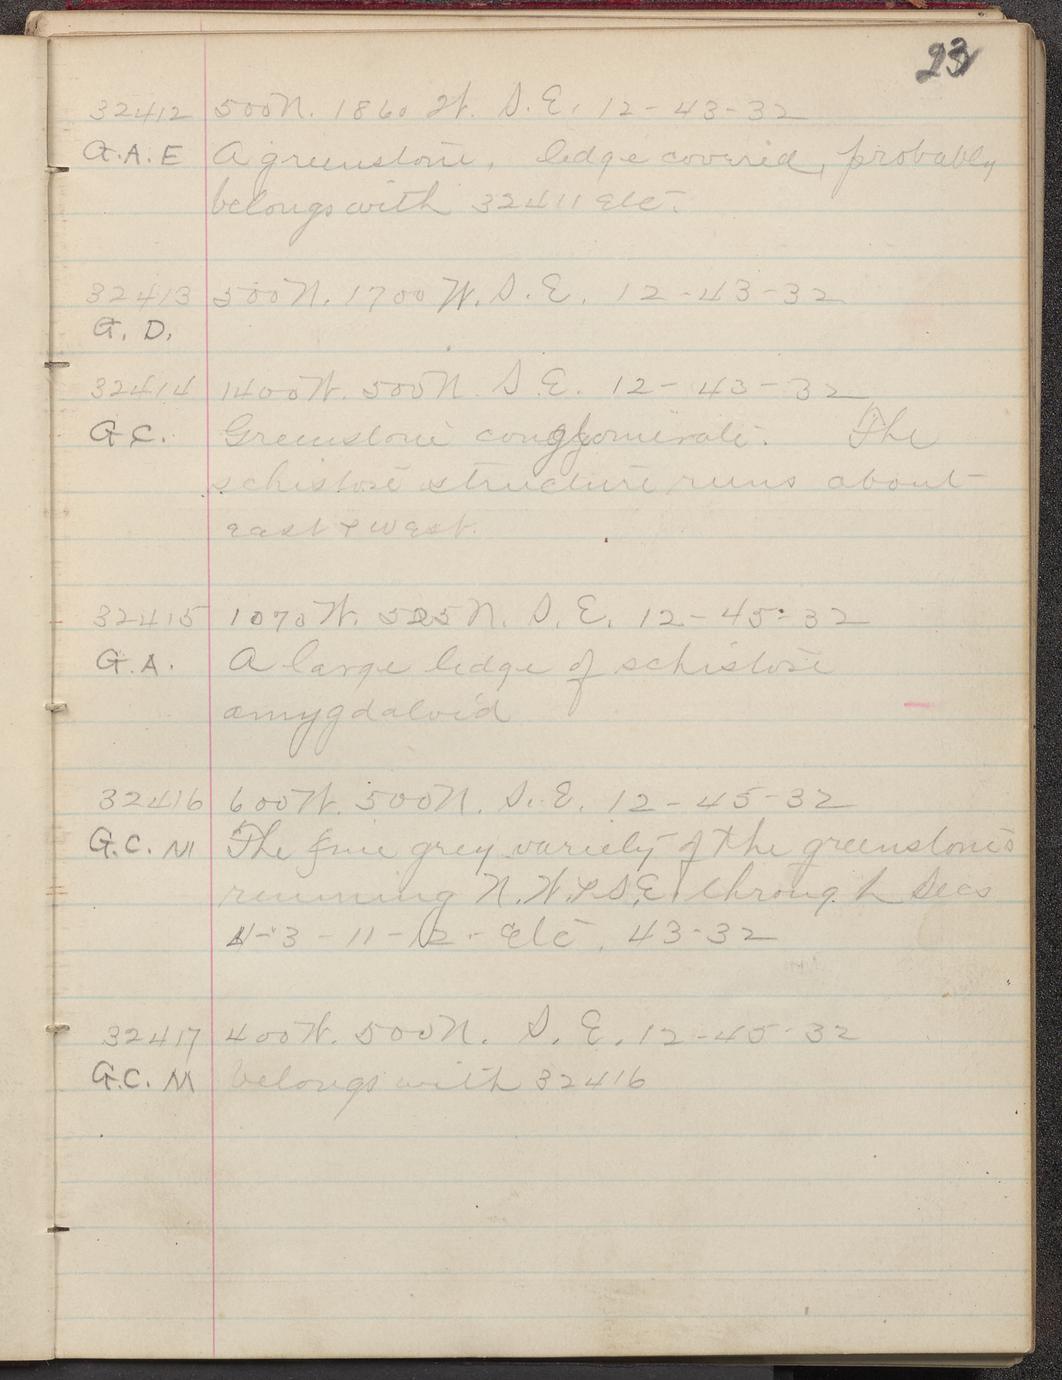 23
32412 500N. 1860 W. S.E. 12-43-32
G.A.E A greenstone, ledge covered, probably
belongs with 32411 etc.
32413 500N. 1700 W. S.E. 12-43-32
G. D.
32414 1400W. 500N. S.E. 12-43-32
G C. Greenstone conglomerate. The
schistose structure runs about
east & west.
32415 1070W. 525N. S.E. 12-45-32
G.A. A large ledge of schistose
amygdaloid
32416 600W. 500N. S.E. 12-45-32
G.C. M The fine grey variety of the greenstones
running N.W. & S.E. through Secs
4-3-11-12- etc, 43-32
32417 400W. 500N. S. E. 12-45-32
G.C. M belongs with 32416